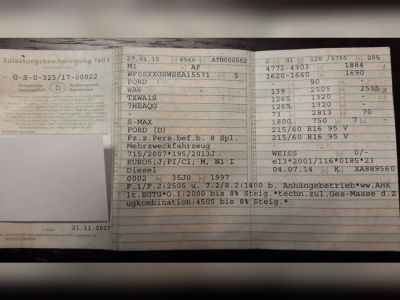 Zulassungsbescheinigung Teil I
G-S-0-325/17-00022
D
21.11.2017
27.01.15 8566 ATR000552
M1 AF
5
FORD
WA6
TXWA1S
7HEAQG
-
S-MAX
FORD (D)
Fz.z.Pers.bef.b. 8 Spl.
Mehrzweckfahrzeug
715/2007*195/2013J
EURO5;J;PI/CI; M, N1 I
Diesel
0002 35J0 1997
2 01 120 /3750 205
4772-4903 1884
1620-1660 1690
139 2505 2505
1265 1320 -
1265 1320 -
73 2813 70
1800 750 7 -
215/60 R16 95 V
215/60 R16 95 V
-
WEISS 0/-
e13*2001/116*0185*23
04.07.14 K XA889560
F.1/F.2:2505 u. 7.2/8.2:1400 b. Anhängebetrieb*ww.AHK
lt.EGTG*O.1:2000 bis 8% Steig.*techn.zul.Ges-Masse d.Z
ugkombination:4505 bis 8% Steig.*